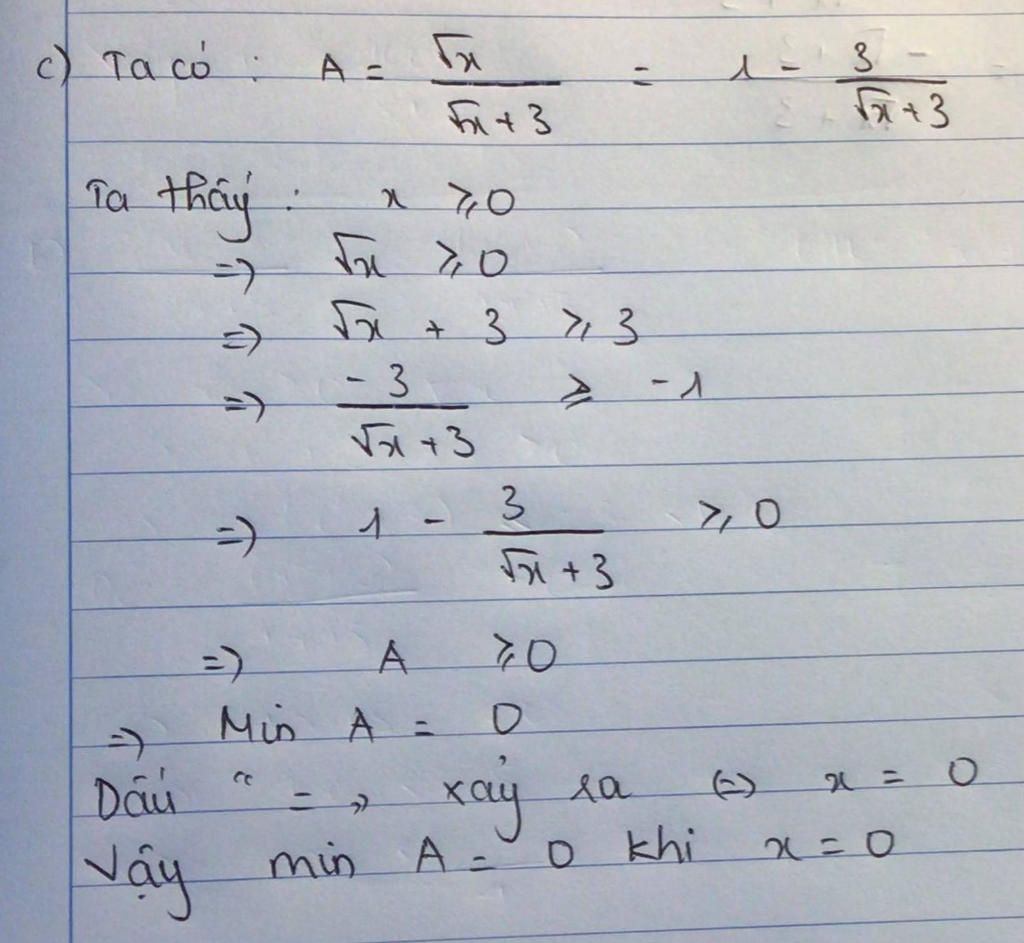 c) Ta có : A = √x / (√x + 3) = 1 - 3 / (√x + 3)
Ta thấy : x ⩾ 0
=> √x ⩾ 0
=> √x + 3 ⩾ 3
=> -3 / (√x + 3) ⩾ -1
=> 1 - 3 / (√x + 3) ⩾ 0
=> A ⩾ 0
=> Min A = 0
Dấu “ = „ xảy ra <=> x = 0
Vậy min A = 0 khi x = 0